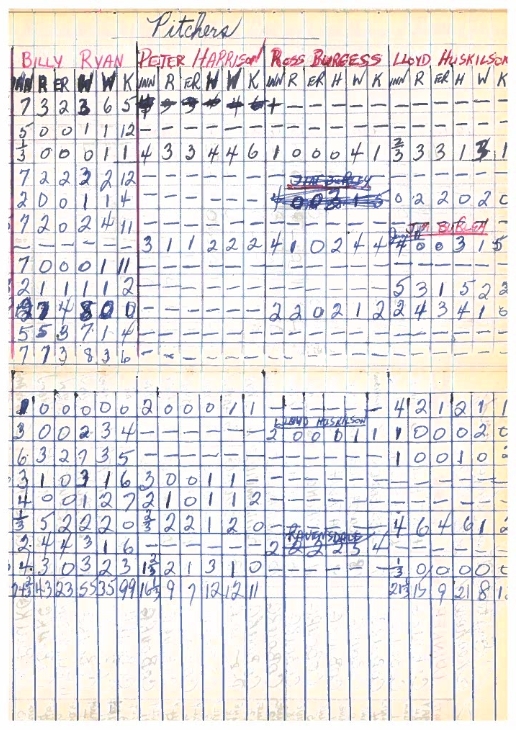 Pitchers
BILLY RYAN PETER HARRISON ROSS BURGESS LLOYD HUSKILSON
INN R ER H W K INN R ER H W K INN R ER H W K INN R ER H W K
7 3 2 3 6 5
5 0 0 1 1 12 — — — — — — — — — — — — — — — — — —
1/3 0 0 0 1 1 4 3 3 4 4 6 1 0 0 0 4 1 2/3 3 3 1 3 1
7 2 2 2 2 12 — — — — — —
JIM BURLEY
2 0 0 1 1 4 — — — — — — 0 2 2 0 2
7 2 0 2 4 11 — — — — — — — — — — — —
JIM BURLEY
— — — — — — 3 1 1 2 2 2 4 1 0 2 4 4 4 0 0 3 1 5
7 0 0 0 1 11 — — — — — — — — — — — —
2 1 1 1 1 2 — — — — — — — — — — — — 5 3 1 5 2 2
— — — — — — 2 2 0 2 1 2 2 4 3 4 1
5 5 3 7 1 4 — — — — — — — — — — — — — — — — — —
7 7 3 8 3 6 — — — — — — — — — — — — — — — — — —
1 0 0 0 0 0 2 0 0 0 1 1 — — — — — — 4 2 1 2 1 1
LLOYD HUSKILSON
3 0 0 2 3 4 — — — — — — 2 0 0 0 1 1 1 0 0 0 2
6 3 2 7 3 5 — — — — — — — — — — — — 1 0 0 1 0
3 1 0 3 1 6 3 0 0 1 1 — — — — — — — — — — —
4 0 0 1 2 7 2 1 0 1 1 2 — — — — — — — — — — —
1/3 5 2 2 2 0 2/3 2 2 1 2 0 — — — — — — 4 6 4 6 1 2
RAVENSDALE
2 4 4 3 1 6 — — — — — — 2 2 2 2 5 4 — — — — —
4 3 0 3 2 3 1 2/3 2 1 3 1 0 — — — — — — 1/3 0 0 0 0
43 23 55 35 99 16 1/3 9 7 12 12 11 21 1/3 15 9 21 8